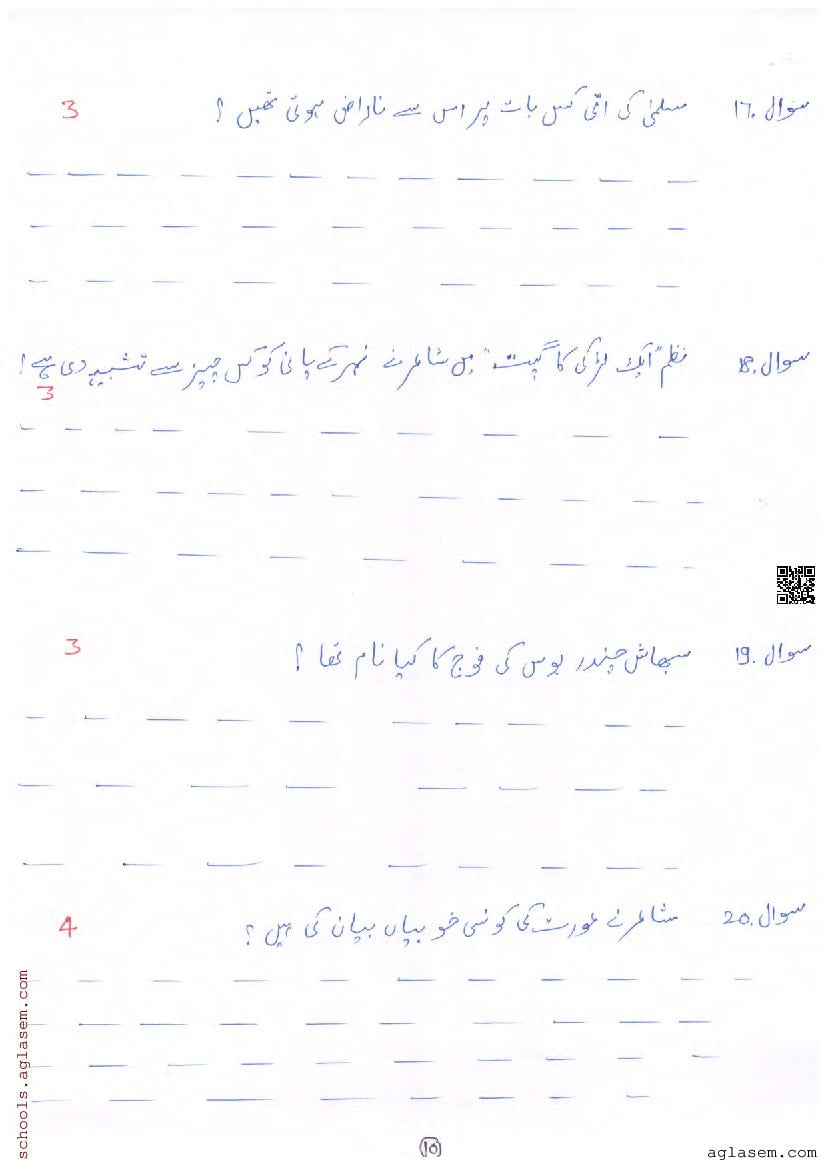 سوال ۱۷. سلمیٰ کی امّی کس بات پر اس سے ناراض ہوتی تھیں ؟ 3
سوال 18. نظم "ایک لڑکی کا گیت" میں شاعر نے نہر کے پانی کو کس چیز سے تشبیہ دی ہے ؟
3
سوال 19. سبھاش چندر بوس کی فوج کا کیا نام تھا ؟ 3
سوال 20. شاعر نے عورت کی کونسی خوبیاں بیان کی ہیں ؟ 4
schools.aglasem.com
10
aglasem.com